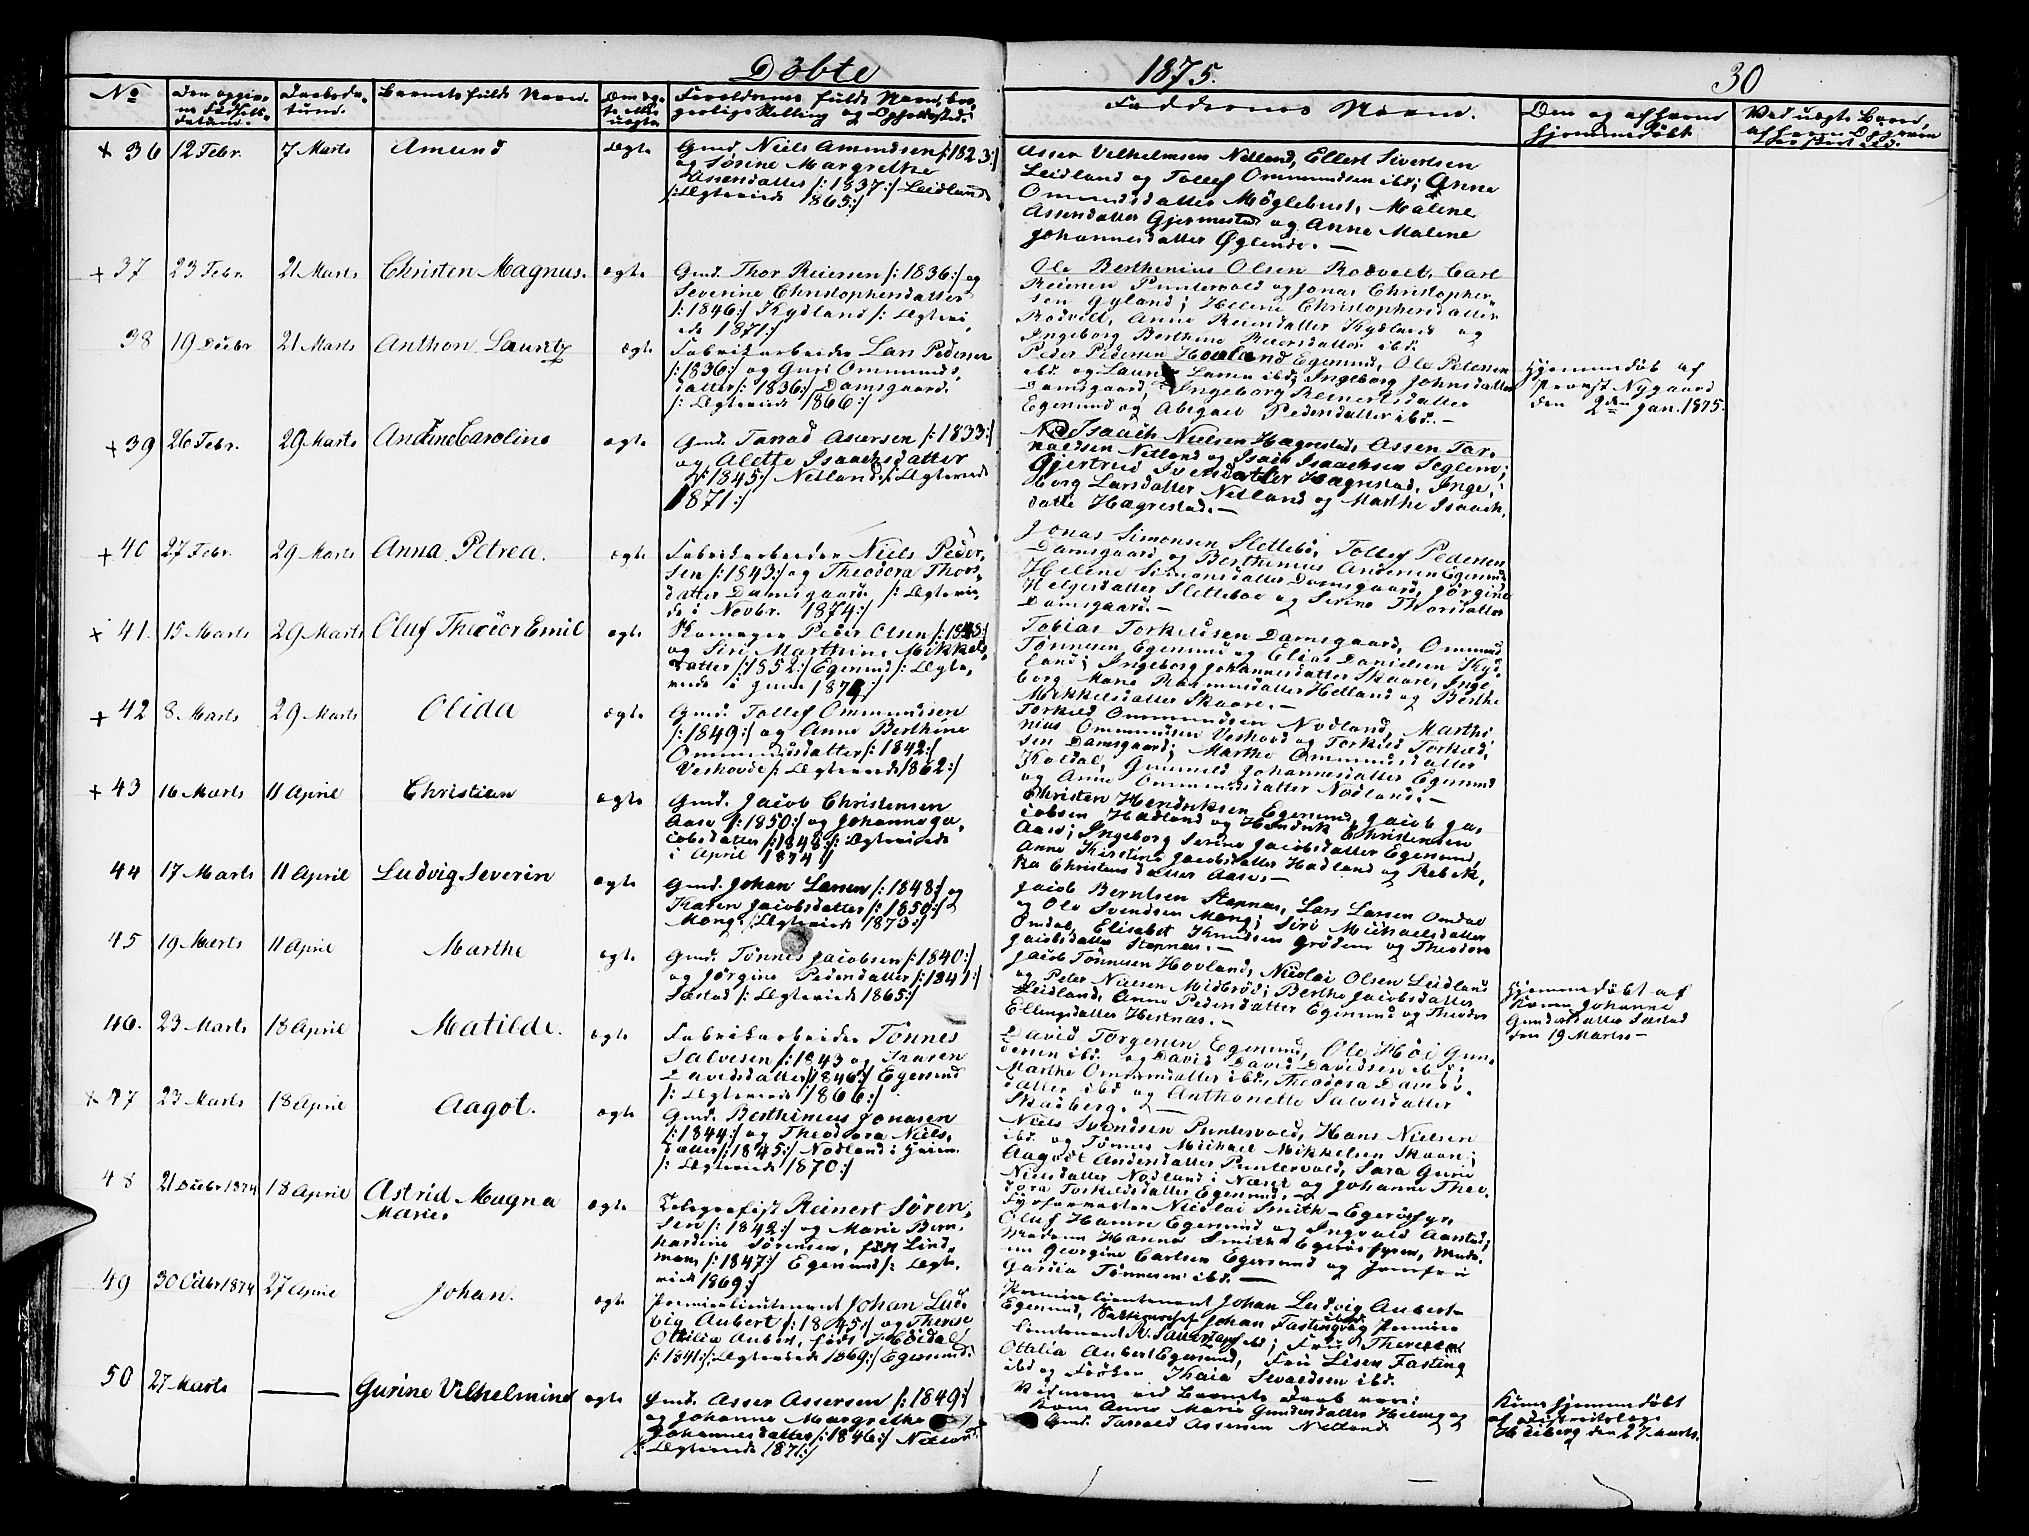 Døbte 1875. 30
No
Barnets fulde Navn.
Faddernes Navn.
+ 36 12 Febr. 7 Marts Amund Ægte Gmd. Niels Amundsen /:1823:/
og Sørine Margrethe
Assersdatter /:1837:/ Leidland
/:Ægteviede 1865:/
Asser Vilhelmsen Netland, Ellert Sivertsen
Leidland og Tollef Ommundsen ibd; Anne
Ommundsdatter Møglebust, Malene
Assersdatter Gjermestad og Anne Malene
Johannesdatter Øglende. —
+ 37 23 Febr. 21 Marts Christen Magnus. ægte Gmd. Thor Reiersen /:1836:/ og
Severine Christophersdatter
/:1846:/ Kydland /: Ægtevi,
ede 1871:/
Ole Berthinius Olsen Rodvelt, Carl
Reiersen Puntervold og Jonas Christopher-
sen Gyland; Helene Christophersdatter
Rodvelt, Anne Reiersdatter Kydland og
Ingeborg Berthine Reiersdatter ibd.
38 19 Decbr 21 Marts Anthon Lauritz ægte Fabrikarbeider Lars Pedersen
/:1836:/ og Guri Ommunds,
datter /:1836:/ Damsgaard.
/: Ægteviede 1866:/
Peder Pedersen Hovland Egersund, Ole Petersen
ibd. og Laurits Larsen ibd; Ingeborg Johnsdatter
Damsgaard, Ingeborg Reinertsdatter
Egersund og Abigael Pedersdatter ibd. —
Hjemmedøbt af
Provst Nygaard
den 2den Jan. 1875.
+ 39 26 Febr. 29 Marts Andine Caroline ægte Gmd. Tarald Assersen /:1833:/
og Alette Isaachsdatter
/:1845:/ Netland /: Ægteviede
1871:/
Isaach Nielsen Hægrestad, Asser Tar,
aldsen Netland og Isach Isaachsen Seglem;
Gjertrud Iversdatter Hægrestad, Inge,
borg Larsdatter Netland og Marthe Isaach,
datte Hægrestad. —
+ 40 27 Febr. 29 Marts Anna Petrea. ægte Fabrikarbeider Niels Peder,
sen /:1843:/ og Theodora Thors,
datter Damsgaard. /: Ægtevie,
de i Novbr. 1874:/
Jonas Simonsen Slettebø, Tollef Pedersen
Damsgaard og Berthinius Andersen Egersund
Helene Simonsdatter Damsgaard, Jørgine
Helgesdatter Slettebøe og Serine Thorsdatter
Damsgaard. —
+ 41. 15 Marts 29 Marts Oluf Theodor Emil ægte Skomager Peder Olsen
og Siri Marthine Mikkels,
datter /:1852:/ Egersund /: Ægte,
Tobias Torkeldsen Damsgaard, Ommund
Tønnesen Egersund og Elias Danielsen Kyd,
land; Ingeborg Johannesdatter Skaare, Inge,
borg Marie Rasmusdatter Helland og Berthe
Mikkelsdatter Skaare. —
+ 42 8 Marts 29 Marts Olida ægte Gmd. Tollef Ommundsen
/:1849:/ og Anne Berthine
Ommundsdatter /:1842:/
Veshovde /: Ægteviede 1862:/
Torkild Ommundsen Nodland, Marthi,
nius Ommundsen Veshovd og Torkild Torkild,
sen Damsgaard; Marthe Ommundsdatter
Koldal, Gunnild Johannesdatter Egersund
og Anne Ommundsdatter Nodland. —
+ 43 16 Marts 11 April Christian ægte Gmd. Jacob Christensen
Aase /:1850:/ og Johanne Ja,
cobsdatter /:1848:/ /: Ægteviede
i April 1874:/
Christen Hendriksen Egersund, Jacob Ja,
cobsen Hadland og Hendrik Christensen
Aase; Ingeborg Serine Jacobsdatter Egersund,
Anne Kirstine Jacobsdatter Hadland og Rebek,
ka Christensdatter Aase. —
44 17 Marts 11 April Ludvig Severin ægte Gmd. Johan Larsen /:1848:/ og
Karen Jacobsdatter /:1850:/
Mong. /: Ægteviede 1873:/
Jacob Berntsen Stapnæs, Lars Larsen Omdal
og Ole Svendsen Mong; Siri Michaelsdatter
Omdal, Elisabet Knudsen Grødem og Theodora
Jacobsdatter Stapnæs. —
45 19 Marts 11 April Marthe ægte Gmd. Tønnes Jacobsen /:1840:/
og Jørgine Pedersdatter /:1841:/
Sæstad /: Ægteviede 1865:/
Jacob Tønnesen Hovland, Nicolai Olsen Leidland
og Peter Nielsen Midbrød; Berthe Jacobsdatter
Leidland, Anne Pedersdatter Egersund og Theodor
Ellingsdatter Hestnæs. —
Hjemmedøbt af
Kone Johanne
Gundersdatter Sæstad
den 19 Marts —
46. 23 Marts 18 April Matilde. ægte Fabrikarbeider Tønnes
Salvesen /:1843 og Karen
Davidsdatter /:1846:/ Egersund
/: Ægteviede 1866:/
David Torgersen Egersund, Ole Høi Gun,
dersen ibd. og David Davidsen ibd.;
Marthe Ommundsdatter ibd., Theodora Davids,
datter ibd og Anthonette Salvesdatter
Skadberg. —
+ 47 23 Marts 18 April Aagot. ægte Gmd. Berthinius Jonasen
/:1844:/ og Theodora Niels,
datter /:1845:/ Nodland i
/: Ægteviede 1870:/
Niels Svendsen Puntervold, Hans Nielsen
ibd. og Tønnes Michael Mikkelsen Skaare;
Aagodt Andersdatter Puntervold, Sara Gurie
Nielsdatter Nodland i Næset og Johanne Theo,
dora Torkeldsdatter Egersund. —
48 21 Decbr 1874 18 April Astrid Magna
Marie. ægte Telegrafist Reinert Søren,
sen /:1842:/ og Marie Bern,
hardine Sørensen, født Lind,
man, /:1847:/ Egersund /: Ægte,
viede 1869:/
Fyrformester Nicolai Smith — Egerøfyr,
Oluf Hamre Egersund og Ingvald Aarstad;
Madame Hanna Smith Egerøsfyren, Mada,
me Georgine Carlsen Egersund og Jomfru
Garsia Tønnesen ibd. —
49 30 Octbr 1874 27 April Johan. ægte Premierlieutenant Johan Lud,
vig Aubert /:1845:/ og Therese
Ottilia Aubert, født Høidal
/:1841:/ /:Ægteviede 1869:/ Egersund.
Premierlieutenant Johan Ludvig Aubert
Egersund, Johan Fasting ibd. og Premier
lieutenant ibd; Frue Therese
Ottilia Aubert Egersund, Frue Lisen Fasting
ibd og Frøken Thaia Sivaldsen ibd.
50 27 Marts — Gurine Vilhelmine ægte Gmd. Asser Assersen /:1849:/
og Johanne Margrethe
Johannesdatter /:1846:/ Netland
/: Ægteviede 1871:/
Vidnerne ved Barnets Daab vare:
Kone Anne Marie Gundersdatter Helvig og
Gmd. Tarrald Assersen Netland
Kun hjemmedøbt
af Distriktslæge
Heiberg den 27 Marts.